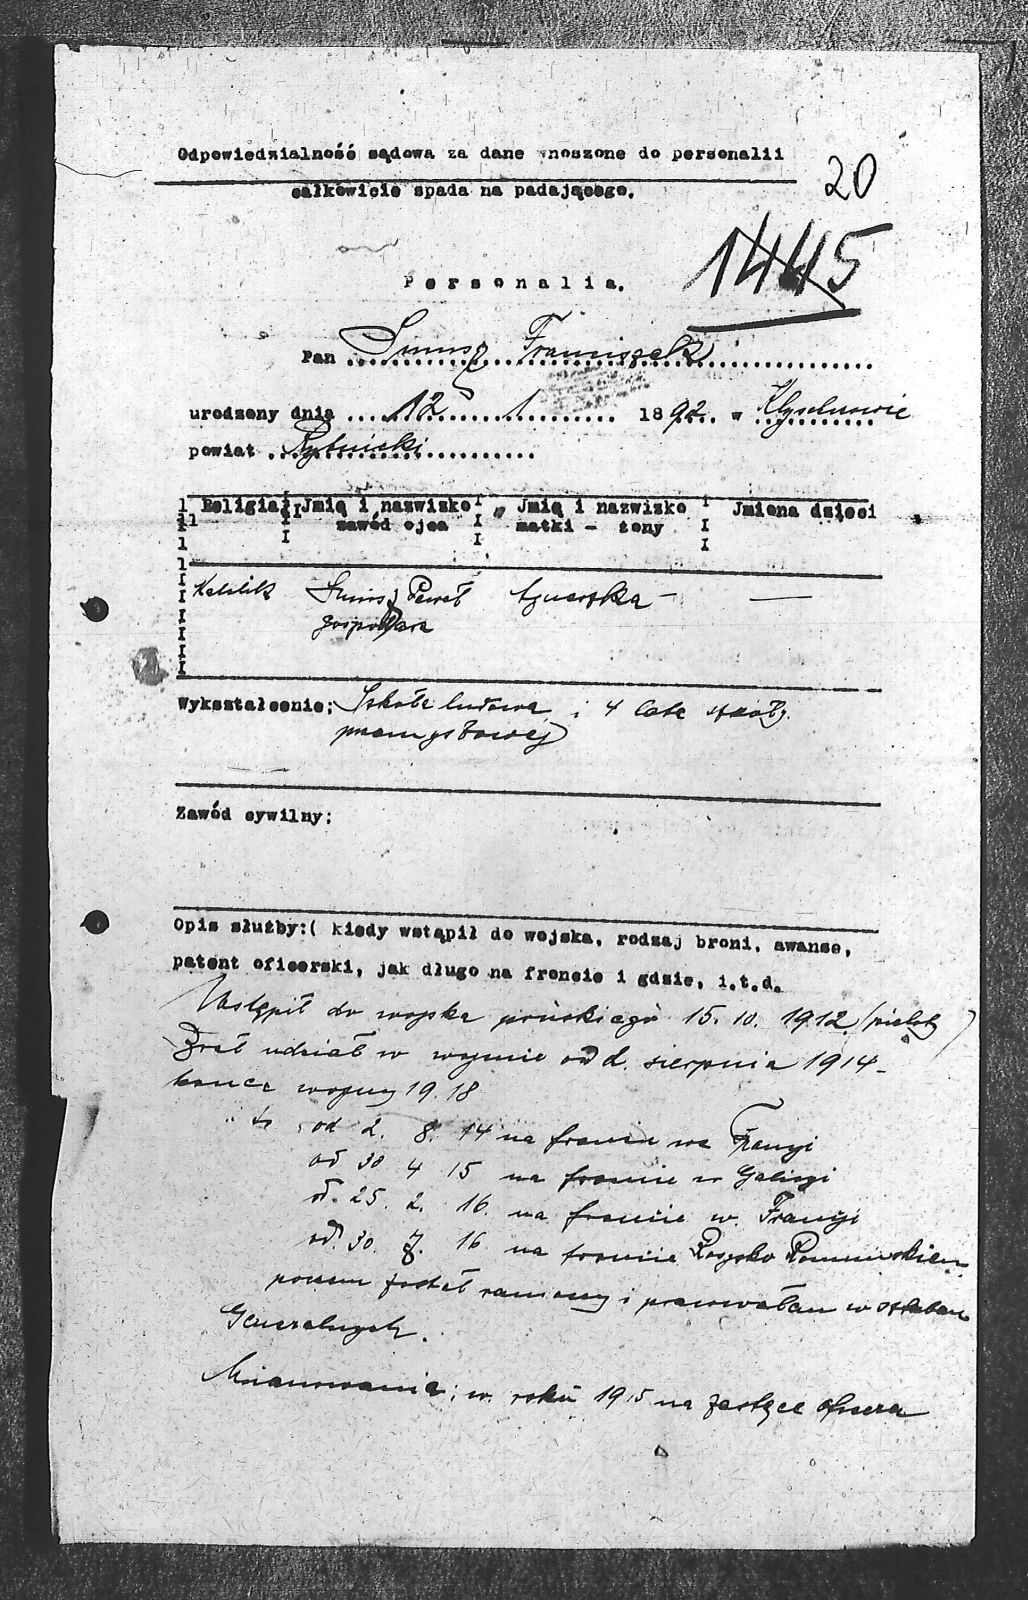 Odpowiedzialność sądowa za dane wnoszone do personalii
całkowicie spada na padającego.
20
1445
Personalia.
Pan Franciszek
urodzony dnia 12 1 1892 w
powiat Rybnicki
Religia Jmię i nazwizko Jmię i nazwizko Jmiona dzieci
zawód ojca matki - żony
Katolik Paweł Agnieszka - —
gospodarz
Wykształcenie: Szkoła ludowa i 4 lata szkoły
przemysłowej
Zawód cywilny:
Opis służby:( kiedy wstąpił do wojska, rodzaj broni, awanse,
patent oficerski, jak długo na froncie i gdzie, i.t.d.
Wstąpił do wojska pruskiego 15. 10. 1912.
Brał udział w wojnie od d. sierpnia 1914 -
końca wojny 19.18
od 2. 8. 14 na froncie we Francji
od 30 4 15 na froncie w Galicji
od. 25. 2. 16. na froncie w. Francji
od. 30. 7. 16 na froncie Rosysko Rumuńskiem
potem został raniony i pracowałem w sztabach
Generalnych.
Mianowania: w. roku 1915 na zastępce oficera